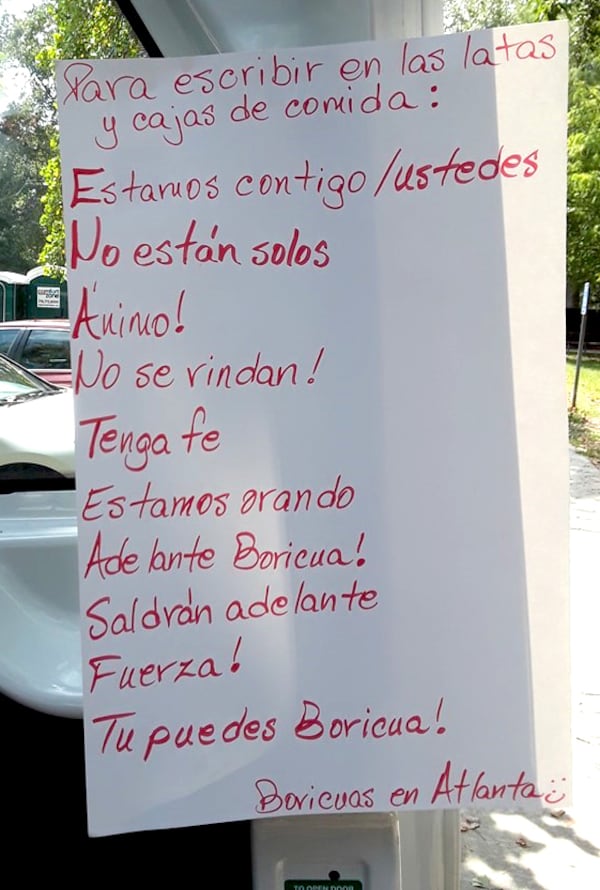 Para escribir en las latas
y cajas de comida:
Estamos contigo/ustedes
No están solos
Ánimo!
No se rindan!
Tenga fe
Estamos orando
Adelante Boricua!
Saldrán adelante
Fuerza!
Tu puedes Boricua!
Boricuas en Atlanta
TO OPEN DOOR